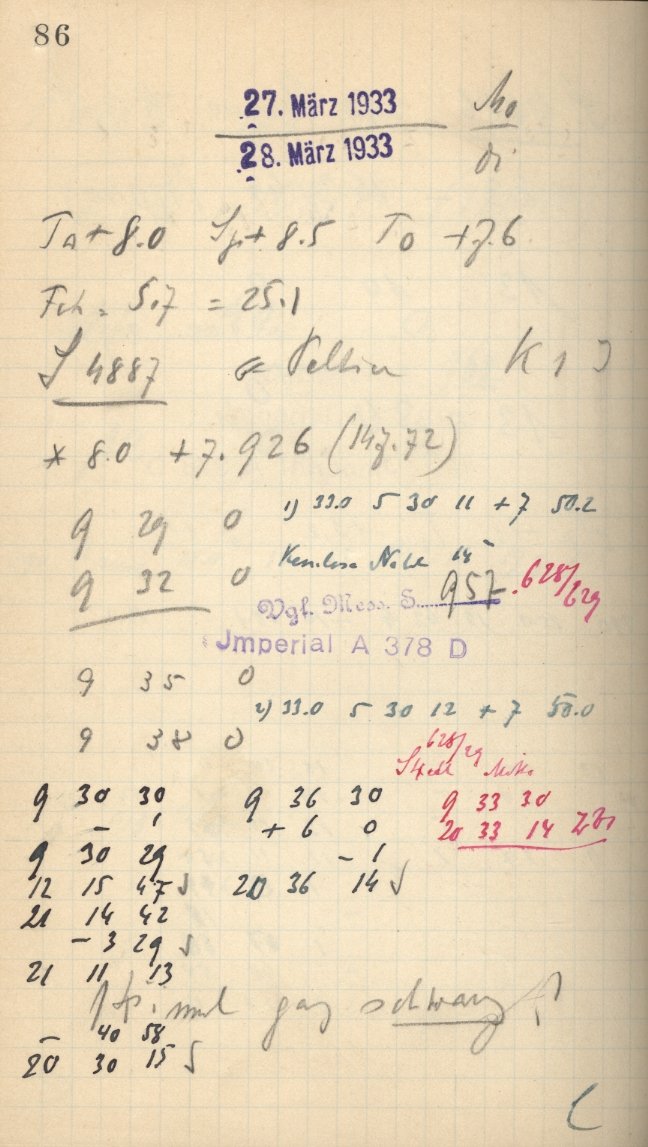 86
27. März 1933 Mo
28. März 1933 Di
Ta + 8.0 Sp + 8.5 To + 7.6
Fch. 5.7 = 25.1
S 4887 K 1 J
* 8.0 + 7.926 (147.72)
9 29 0
1) 33.0 5 30 11 + 7 50.2
9 32 0
957. 628/629
Vgl. Mess. S.
Imperial A 378 D
9 35 0
2) 33.0 5 30 12 + 7 50.0
9 38 0
628/29
9 30 30 9 36 30 9 33 30
- 1 + 6 0 20 33 14
9 30 29 - 1
12 15 47 20 36 14
21 14 42
- 3 29
21 11 13
ganz schwarz
- 40 58
20 30 15